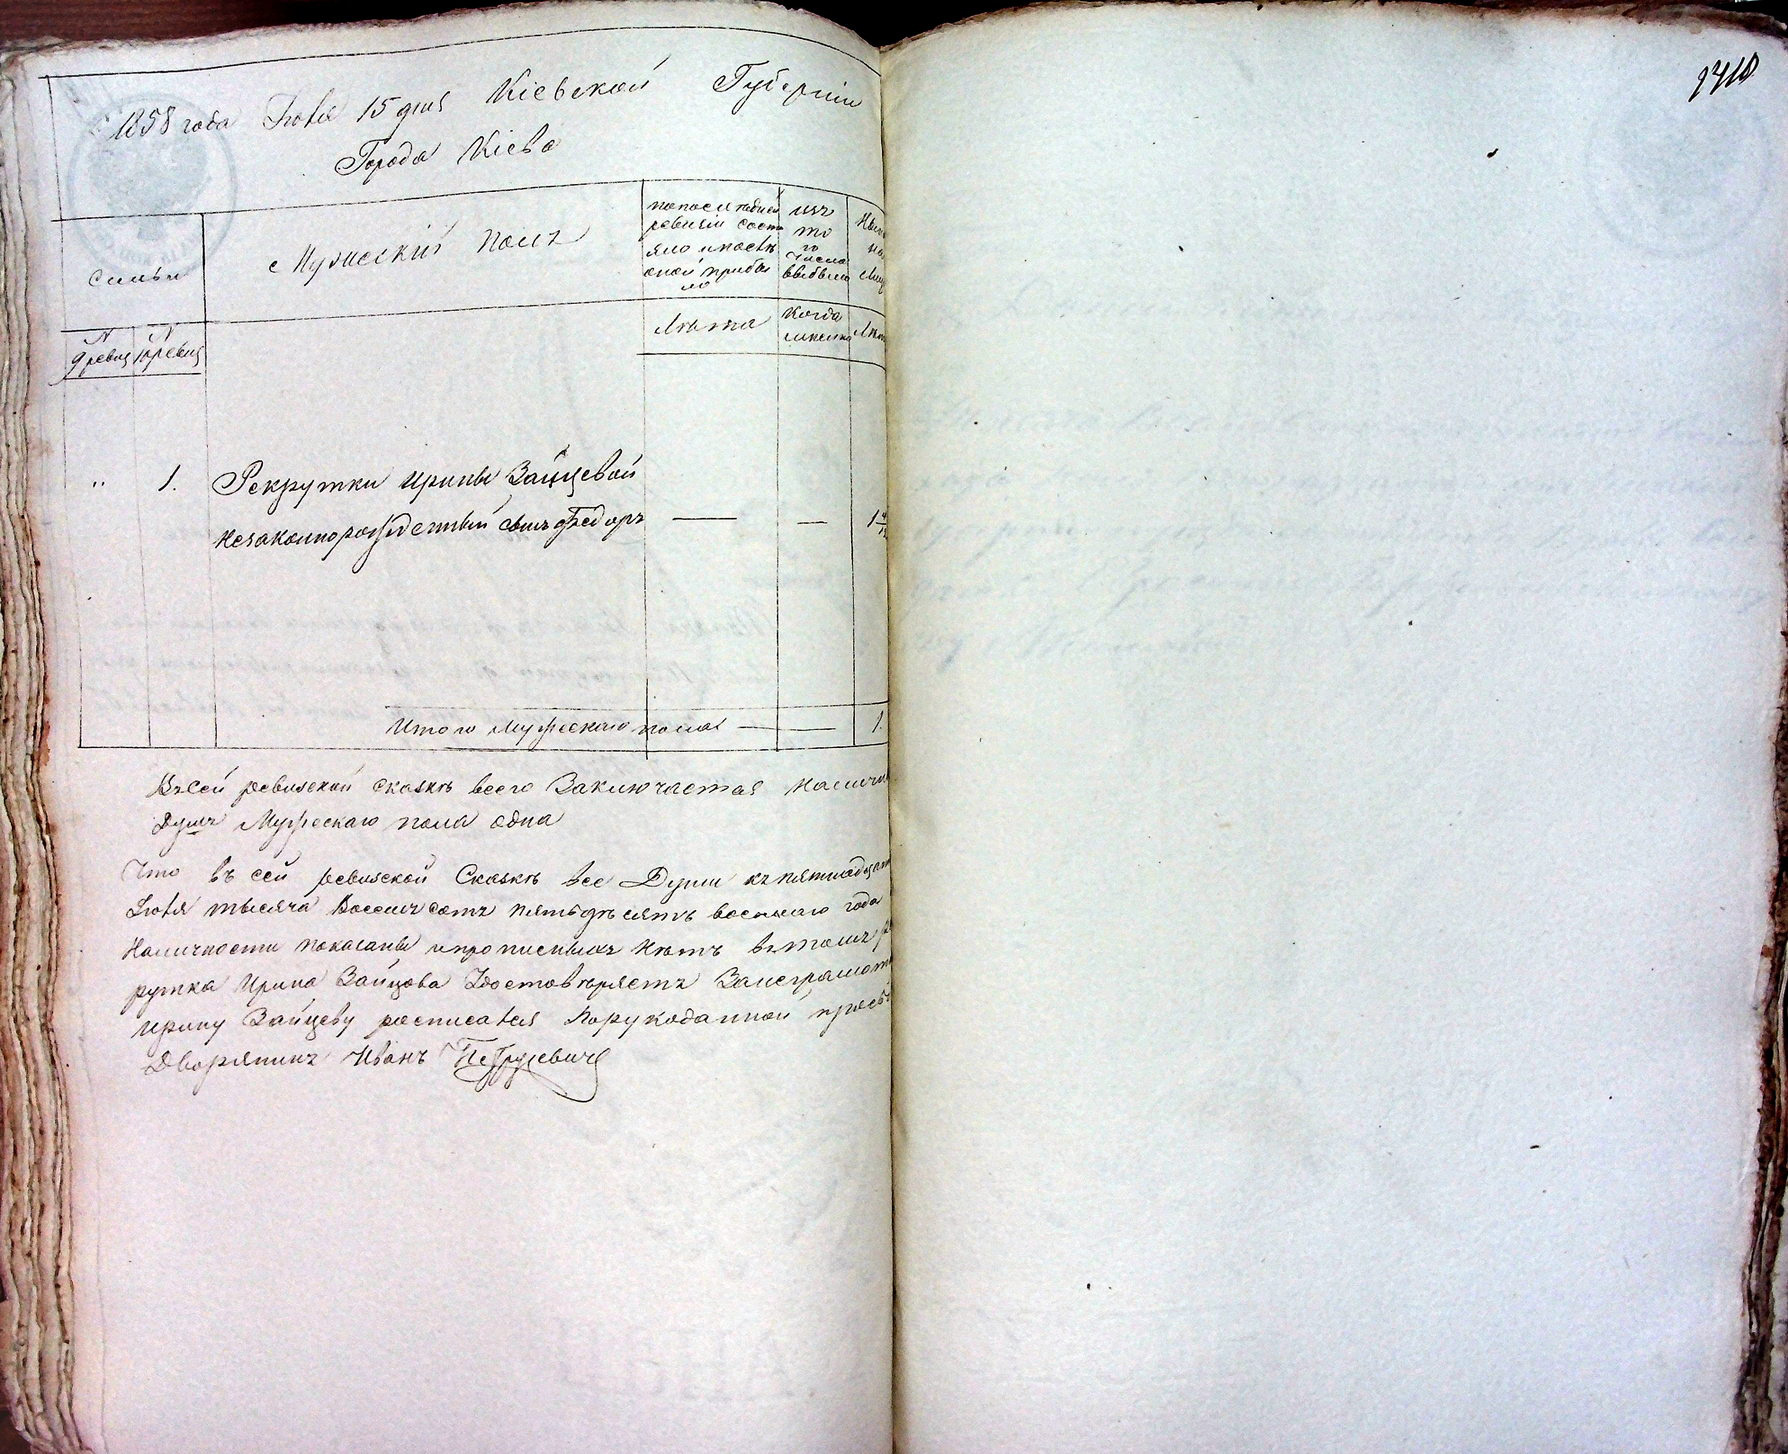 1858 года Іюля 15 дня Кіевской Губерніи
Города Кіева
Семьи
Мужескій полъ
по последней
ревизіи состо
яло и послѣ
оной прибы
ло
изъ
то
го
числа
выбыло
Лѣта
Когда
именно
Лѣта
№ 9 ревиз
№ 10 ревиз
" 1. Рекрутки Ирины Зайцевой
незаконорожденный сынъ Федоръ — — 1
Итого Мужескаго пола — — 1.
Въ сей ревизской сказкѣ всего Заключается Налич
Душъ Мужескаго пола одна
Что въ сей ревизской Сказкѣ все Души къ пятнадцат
Іюля тысяча восемъ сотъ пятьдѣсятъ восьмаго года
Наличности показаны и прописныхъ нѣтъ въ томъ
рутка Ирина Зайцова Удостовѣряетъ За неграмотн
Ирину Зайцеву росписался По рукоданной прозь
Дворянинъ Иванъ Петрусевичъ
1410